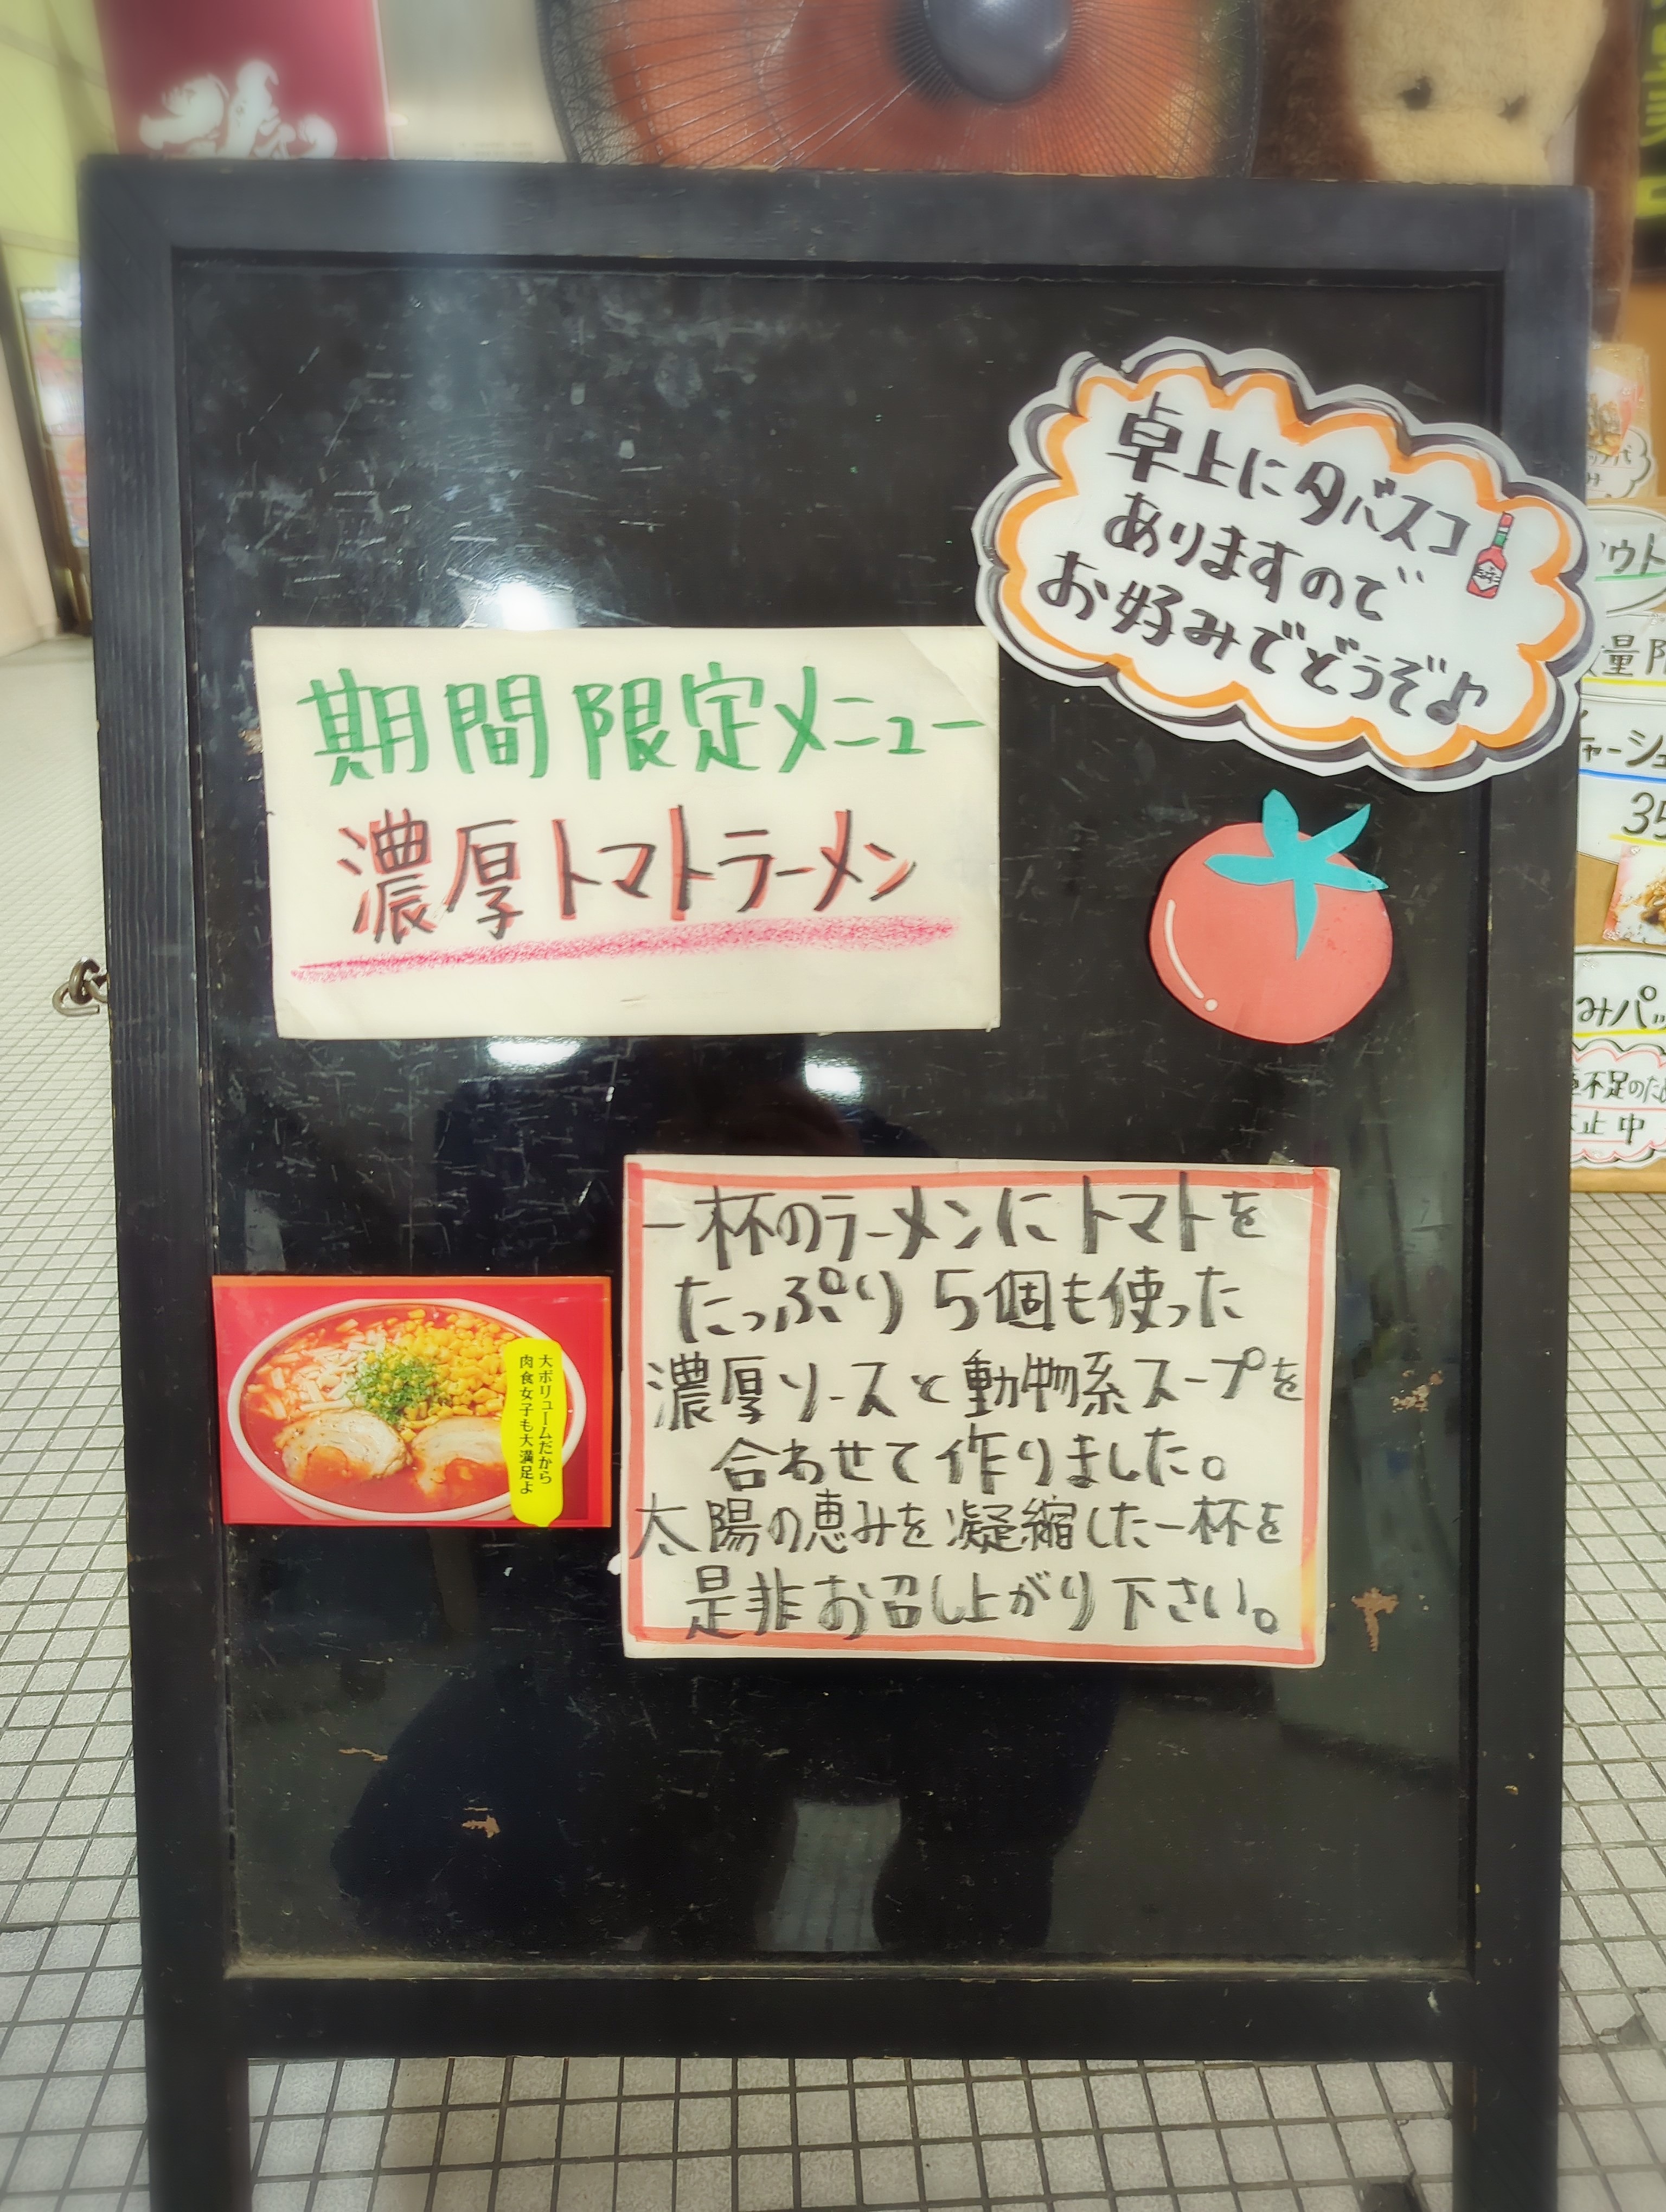 卓上にタバスコ
ありますので
お好みでどうぞ♪
期間限定メニュー
濃厚トマトラーメン
一杯のラーメンにトマトを
たっぷり5個も使った
濃厚ソースと動物系スープを
合わせて作りました。
太陽の恵みを凝縮した一杯を
是非お召し上がり下さい。
大ボリュームだから
肉食女子も大満足よ
ウト
量
チャーシュ
35
みパッ
不足のため
止中